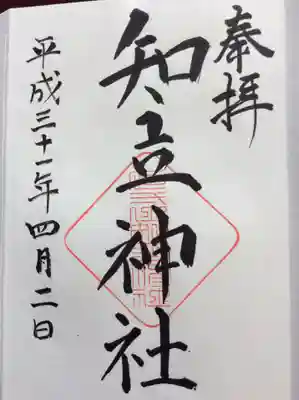 奉拝
知立神社
平成三十一年四月二日